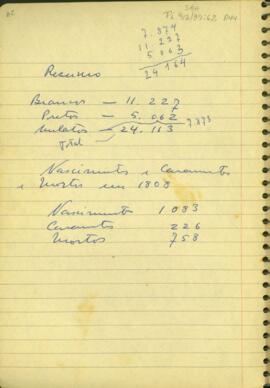 7.874
11.227
5.063
24.164
Resumo
Brancos — 11.227
Pretos — 5.062
Mulatos — 7.873
24.113
Total
Nascimentos e Casamentos
e Mortos em 1808
Nascimentos 1083
Casamentos 226
Mortos 758